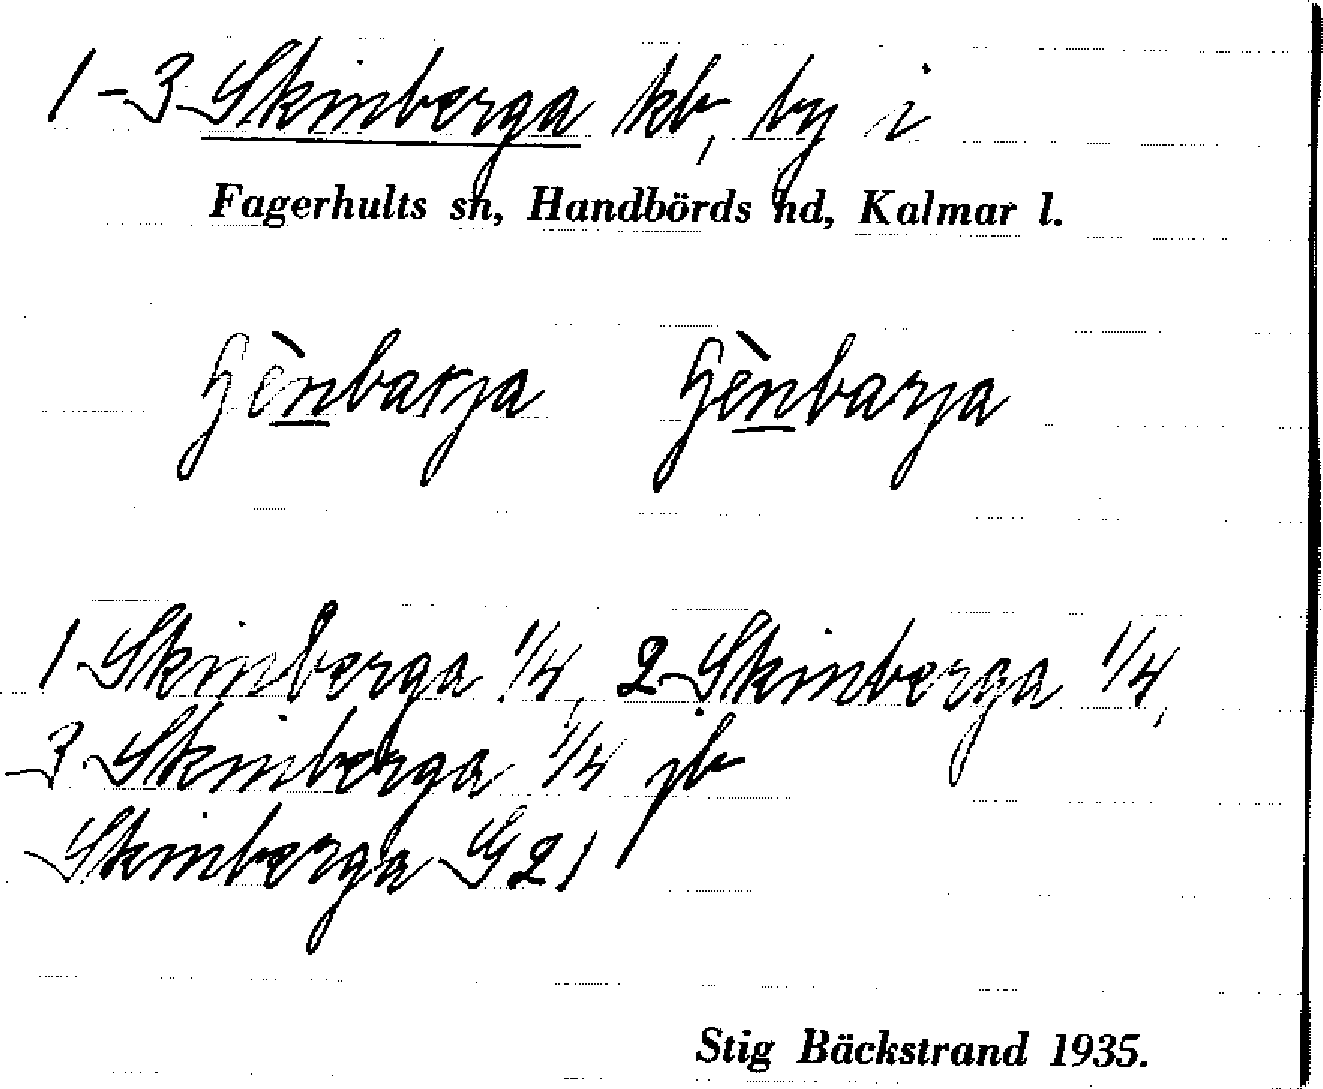 1-3 Skinberga kb, by i
Fagerhults sn, Handbörds hd, Kalmar l.
1 Skinberga 1/4, 2 Skinberga 1/4,
3 Skinberga 1/4 jb
Skinberga G 21
Stig Bäckstrand 1935.